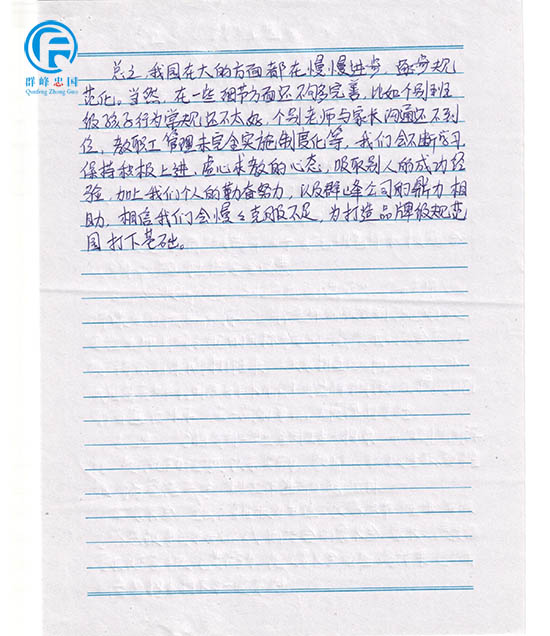 群峰忠国
Qunfeng Zhong Guo
总之,我园在大的方面都在慢慢进步,逐步规
范化。当然,在一些细节方面还不够完善,比如个别班
级孩子行为常规还不太好,个别老师与家长沟通还不到
位,教职工管理未完全实施制度化等,我们会不断学习
保持积极上进,虚心求教的心态,吸取别人的成功经
验,加上我们个人的勤奋努力,以及群峰公司的鼎力相
助,相信我们会慢々克服不足,为打造品牌级规范
园打下基础。